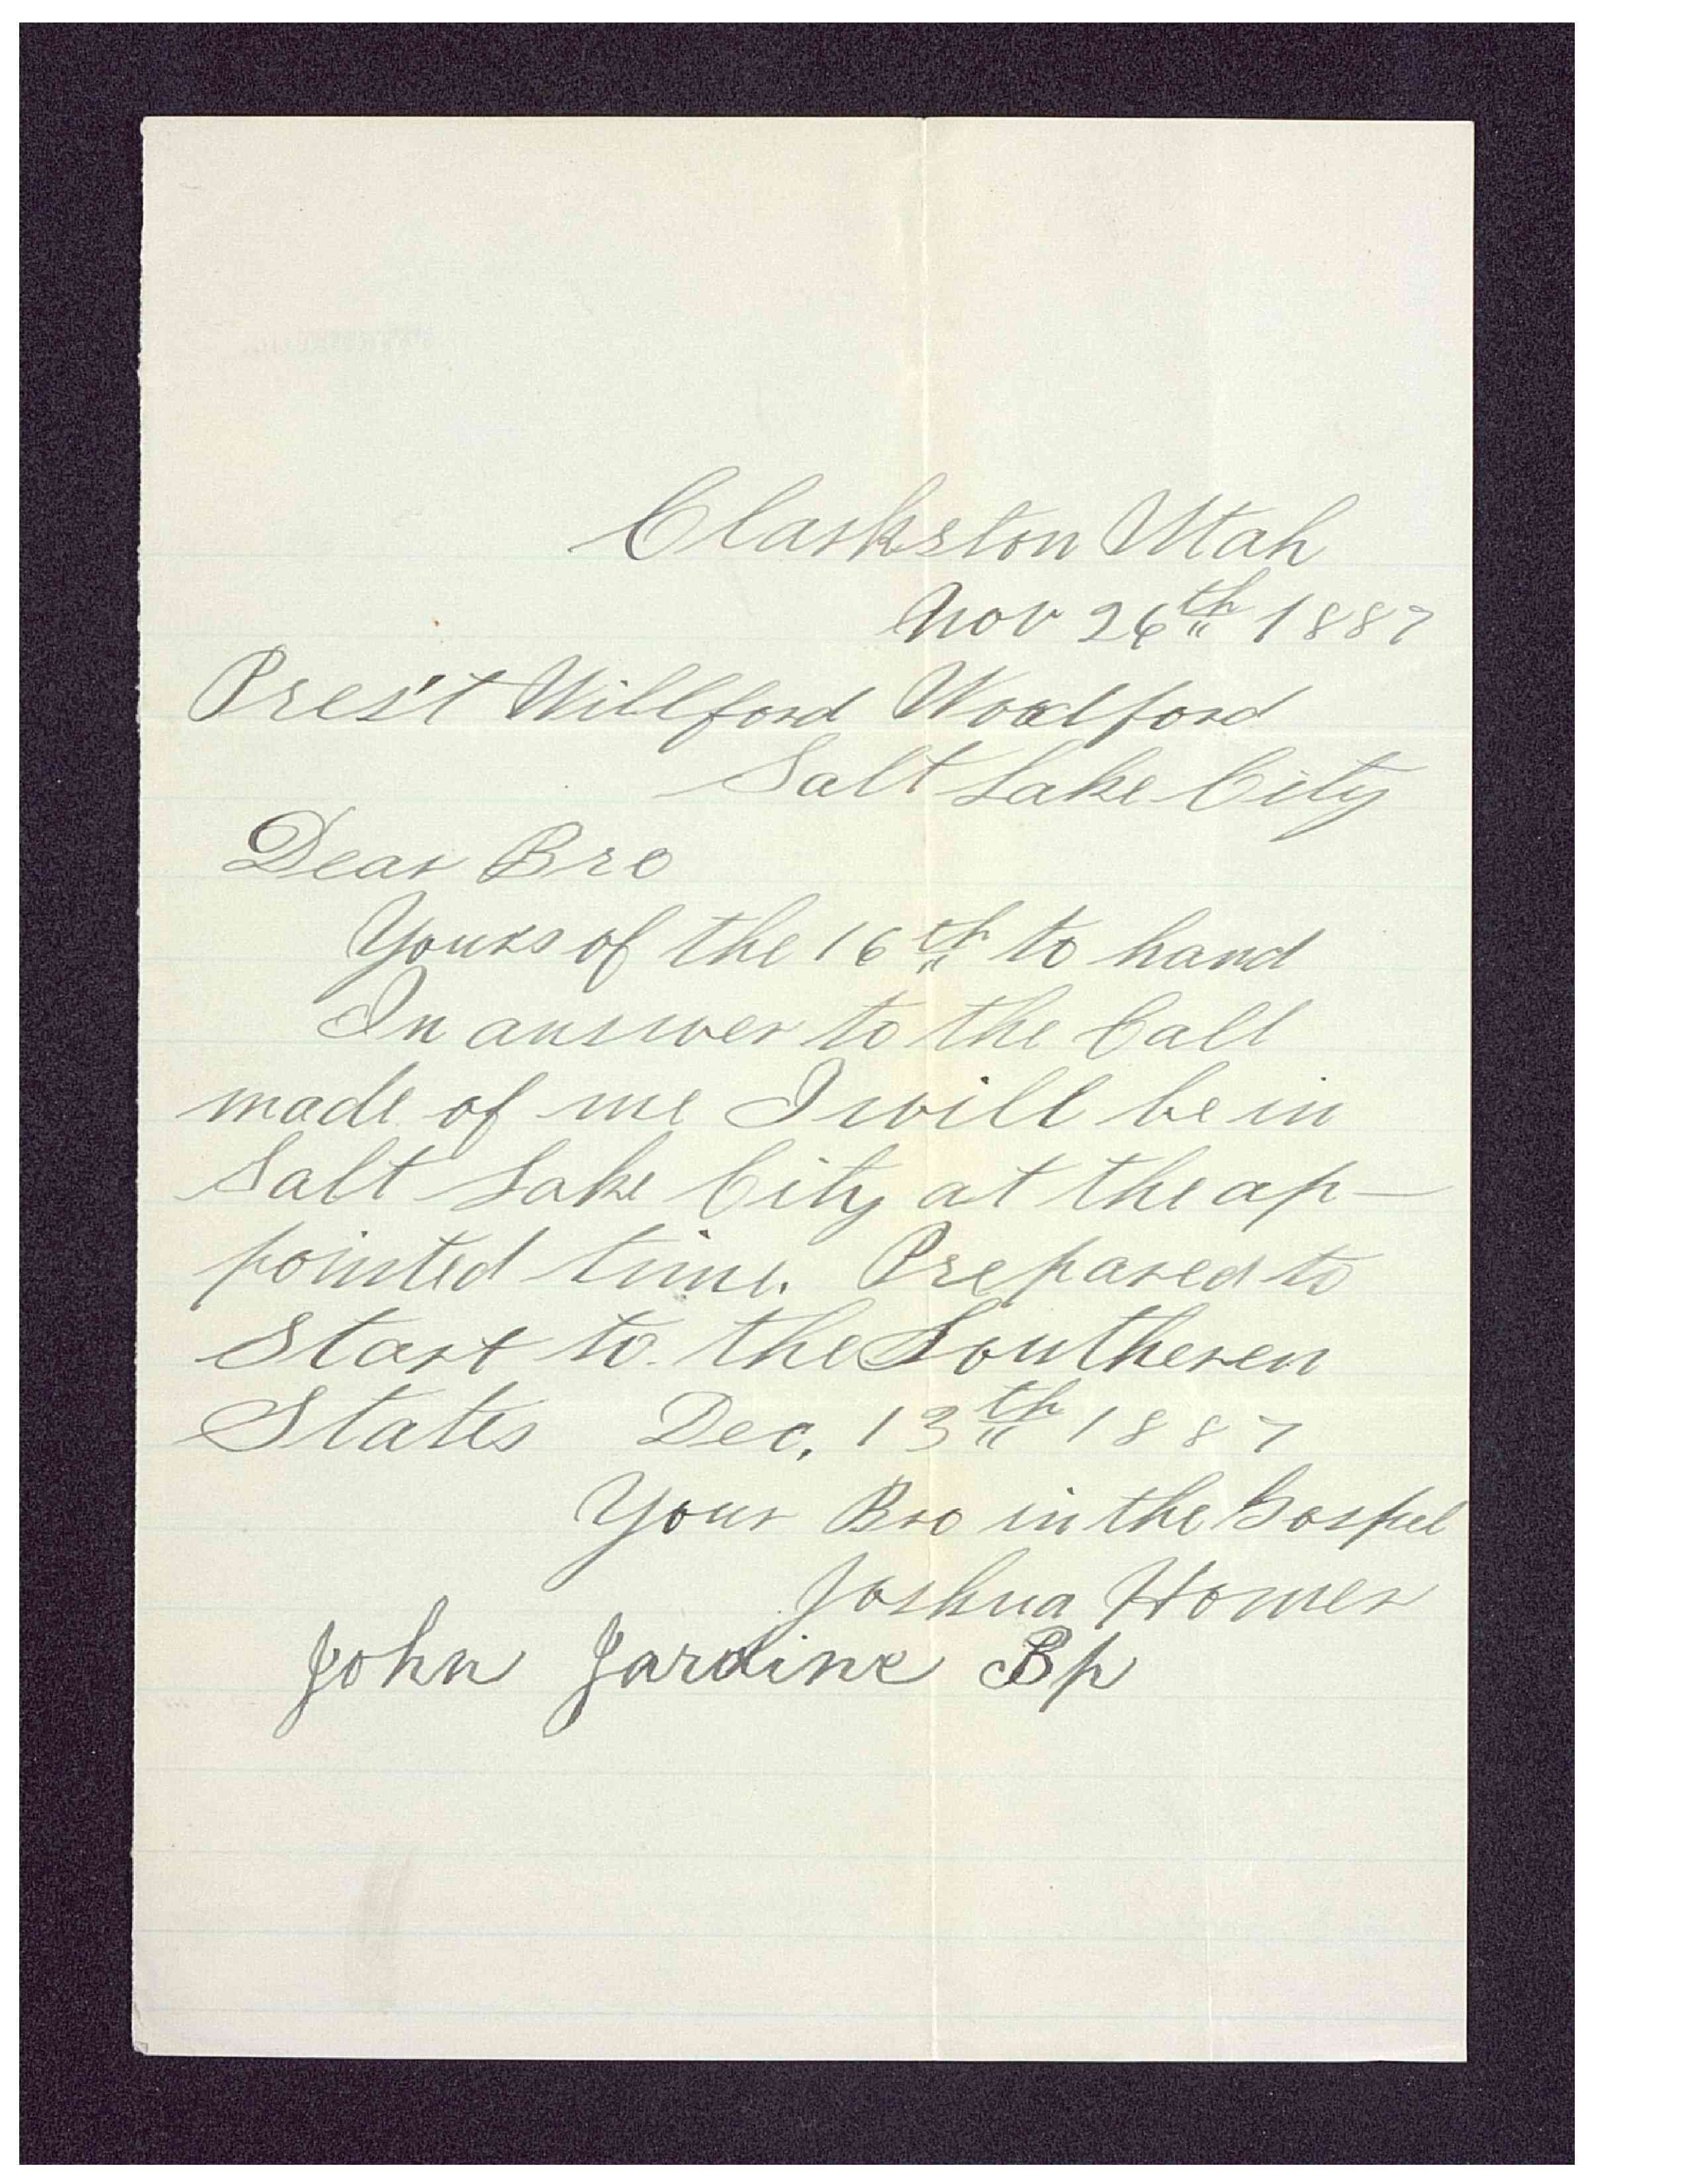 Clarkston Utah
Nov 26th 1887
Pres't Willford Woodford
Salt Lake City
Dear Bro
Yours of the 16th to hand
In answer to the Call
made of me I will be in
Salt Lake City at the ap-
pointed time. Prepared to
Start to the Southeren
States Dec. 13th 1887
Your Bro in the Gospel
Joshua Homer
John Jardine Bp